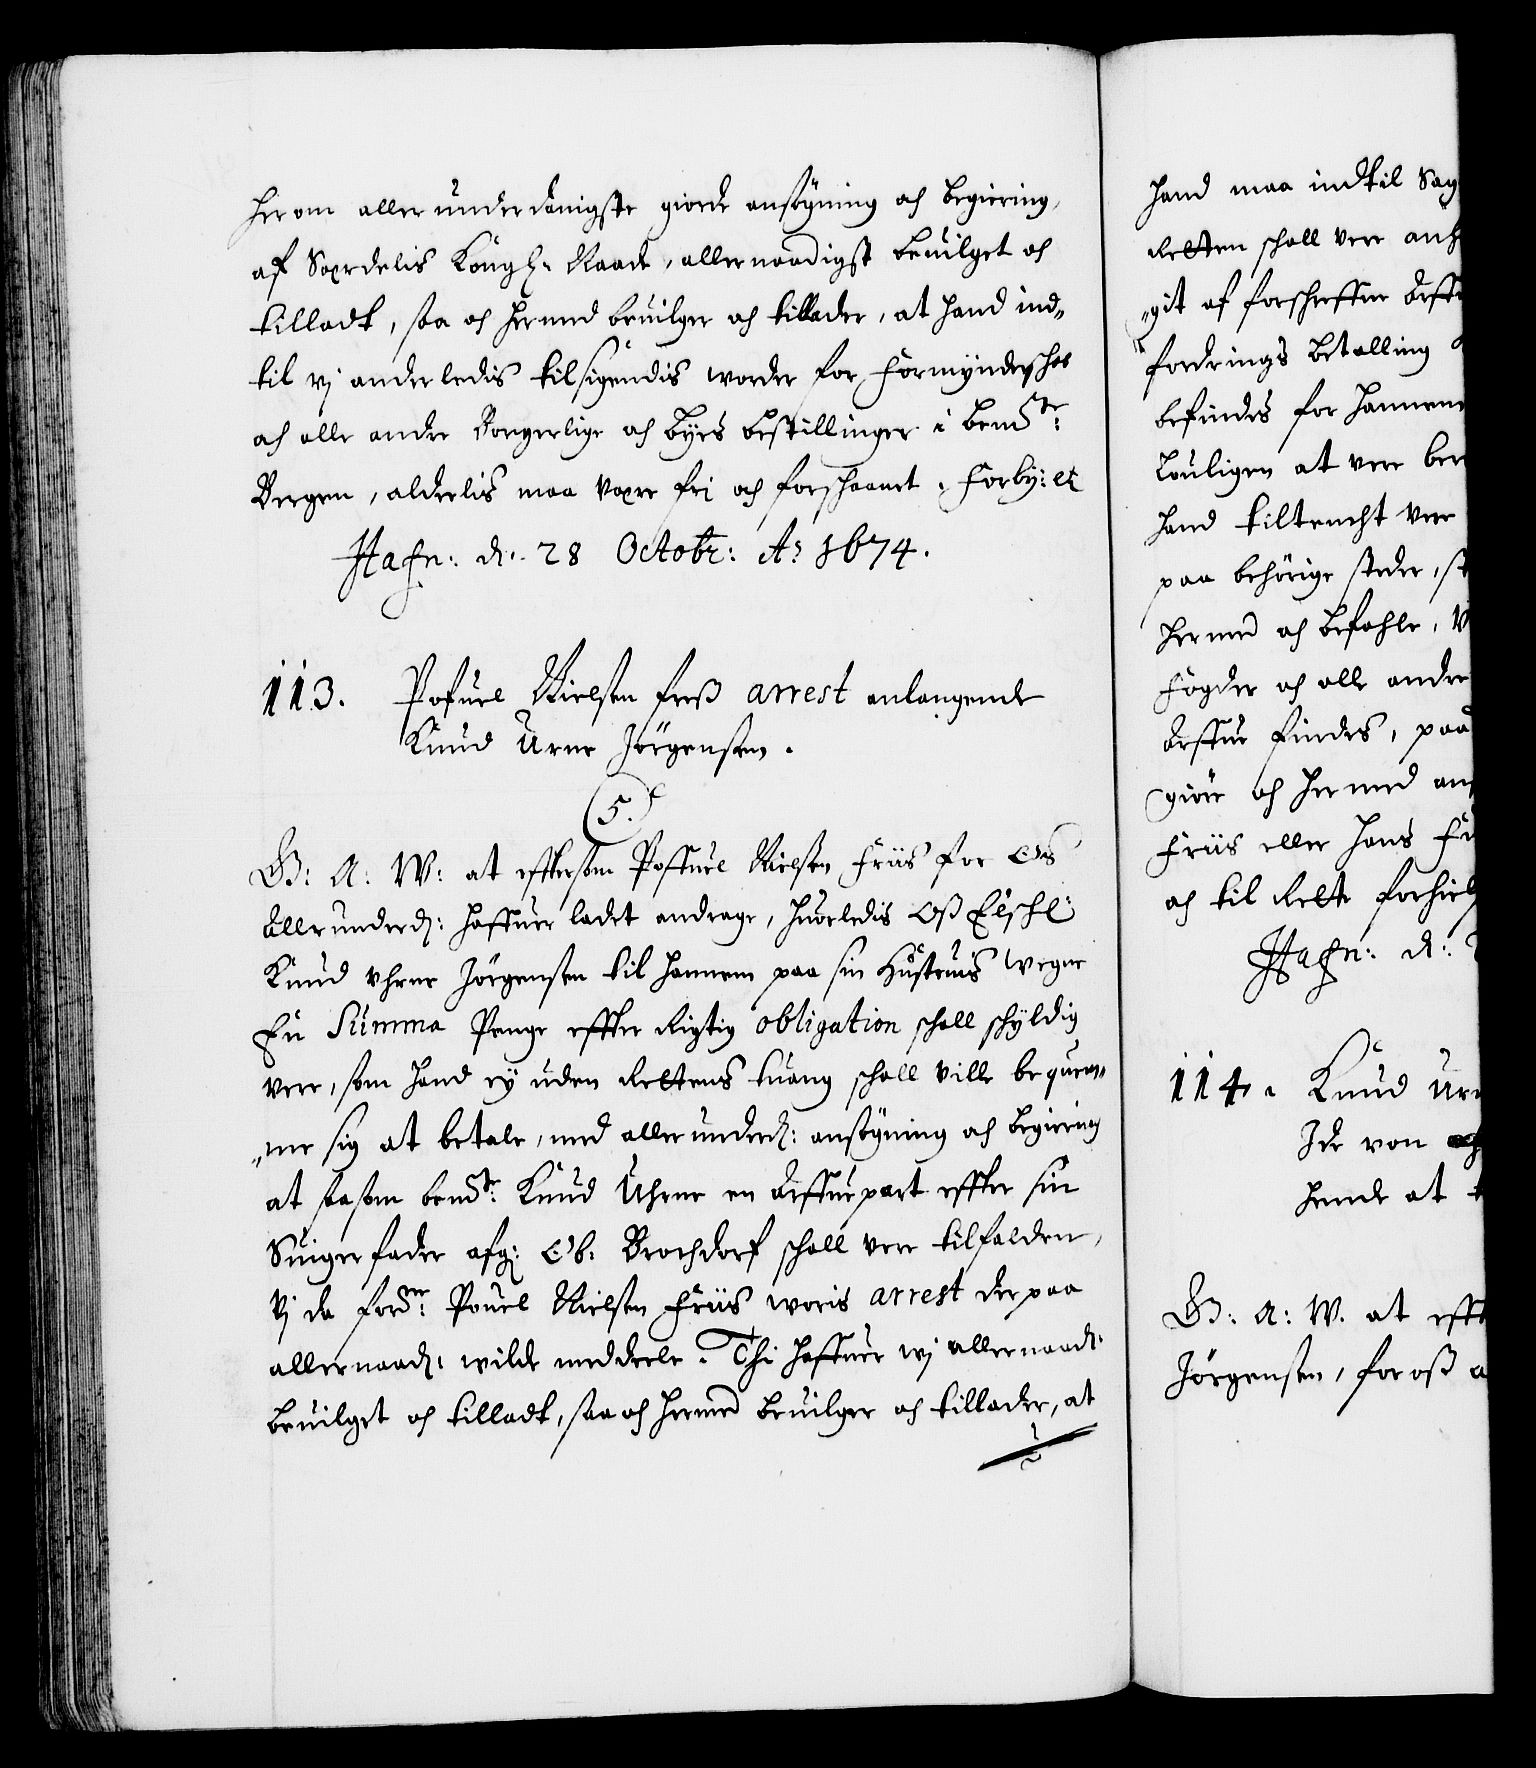 her om allerunderdanigste giorde ansögning och begiering,
af Særdelis Kongl: Naade, allernaadigst bevilget och
tilladt, saa och hermed bevilger och tillader, at hand ind-
til vj anderledis tilsigendis worder for Formynderschab
och alle andre Borgerlige och byes bestillinger i bemte:
Bergen, aldelis maa være fri och forschaanet. Forby: etc
Hafn: d: 28 Octobr: Ao 1674.
113. Pofuel Nielsen friß arrest anlangende
Knud Urne Jörgensen.
5.
G: A: W: at eftersom Poffuel Nielsen Friis for Os
allerunderd: haffuer ladet andrage, huorledis Oß Elschl:
Knud Uhrne Jörgensen til hannem paa sin Hustruis wegne
En Summa Penge effter Rigtig obligation schall schyldig
vere, som hand ey uden Rettens tuang schall ville bequem-
me sig at betale, med allerunderd: ansögning och begiering
at saasom bemte: Knud Uhrne en arffue part effter sin
Suigerfader afg: Ob: Brochdorf schall vere tilfalden,
Vj da fordne: Pouel Nielsen Friis woris arrest der paa
allernaad: wilde meddeele. Thi haffuer wj allernaad:
bevilget och tilladt, saa och hermed bevilger och tillader, at
hand maa indtil Sag
Retten schall vere anh
git af forschreffne arff
fordrings betalling
befindes for hannem
Louligen at vere ber
hand tiltencht vere
paa behörige steder, s
hermed och befahle, V
Fögder och alle andre
arffue findes, paa
giöre och hermed an
Friis eller hans Fu
och til Rette forhiel
Hafn: d:
114. Knud Ur
Ide von
hende at t
G: A: W. at efft
Jörgensen, for oß a